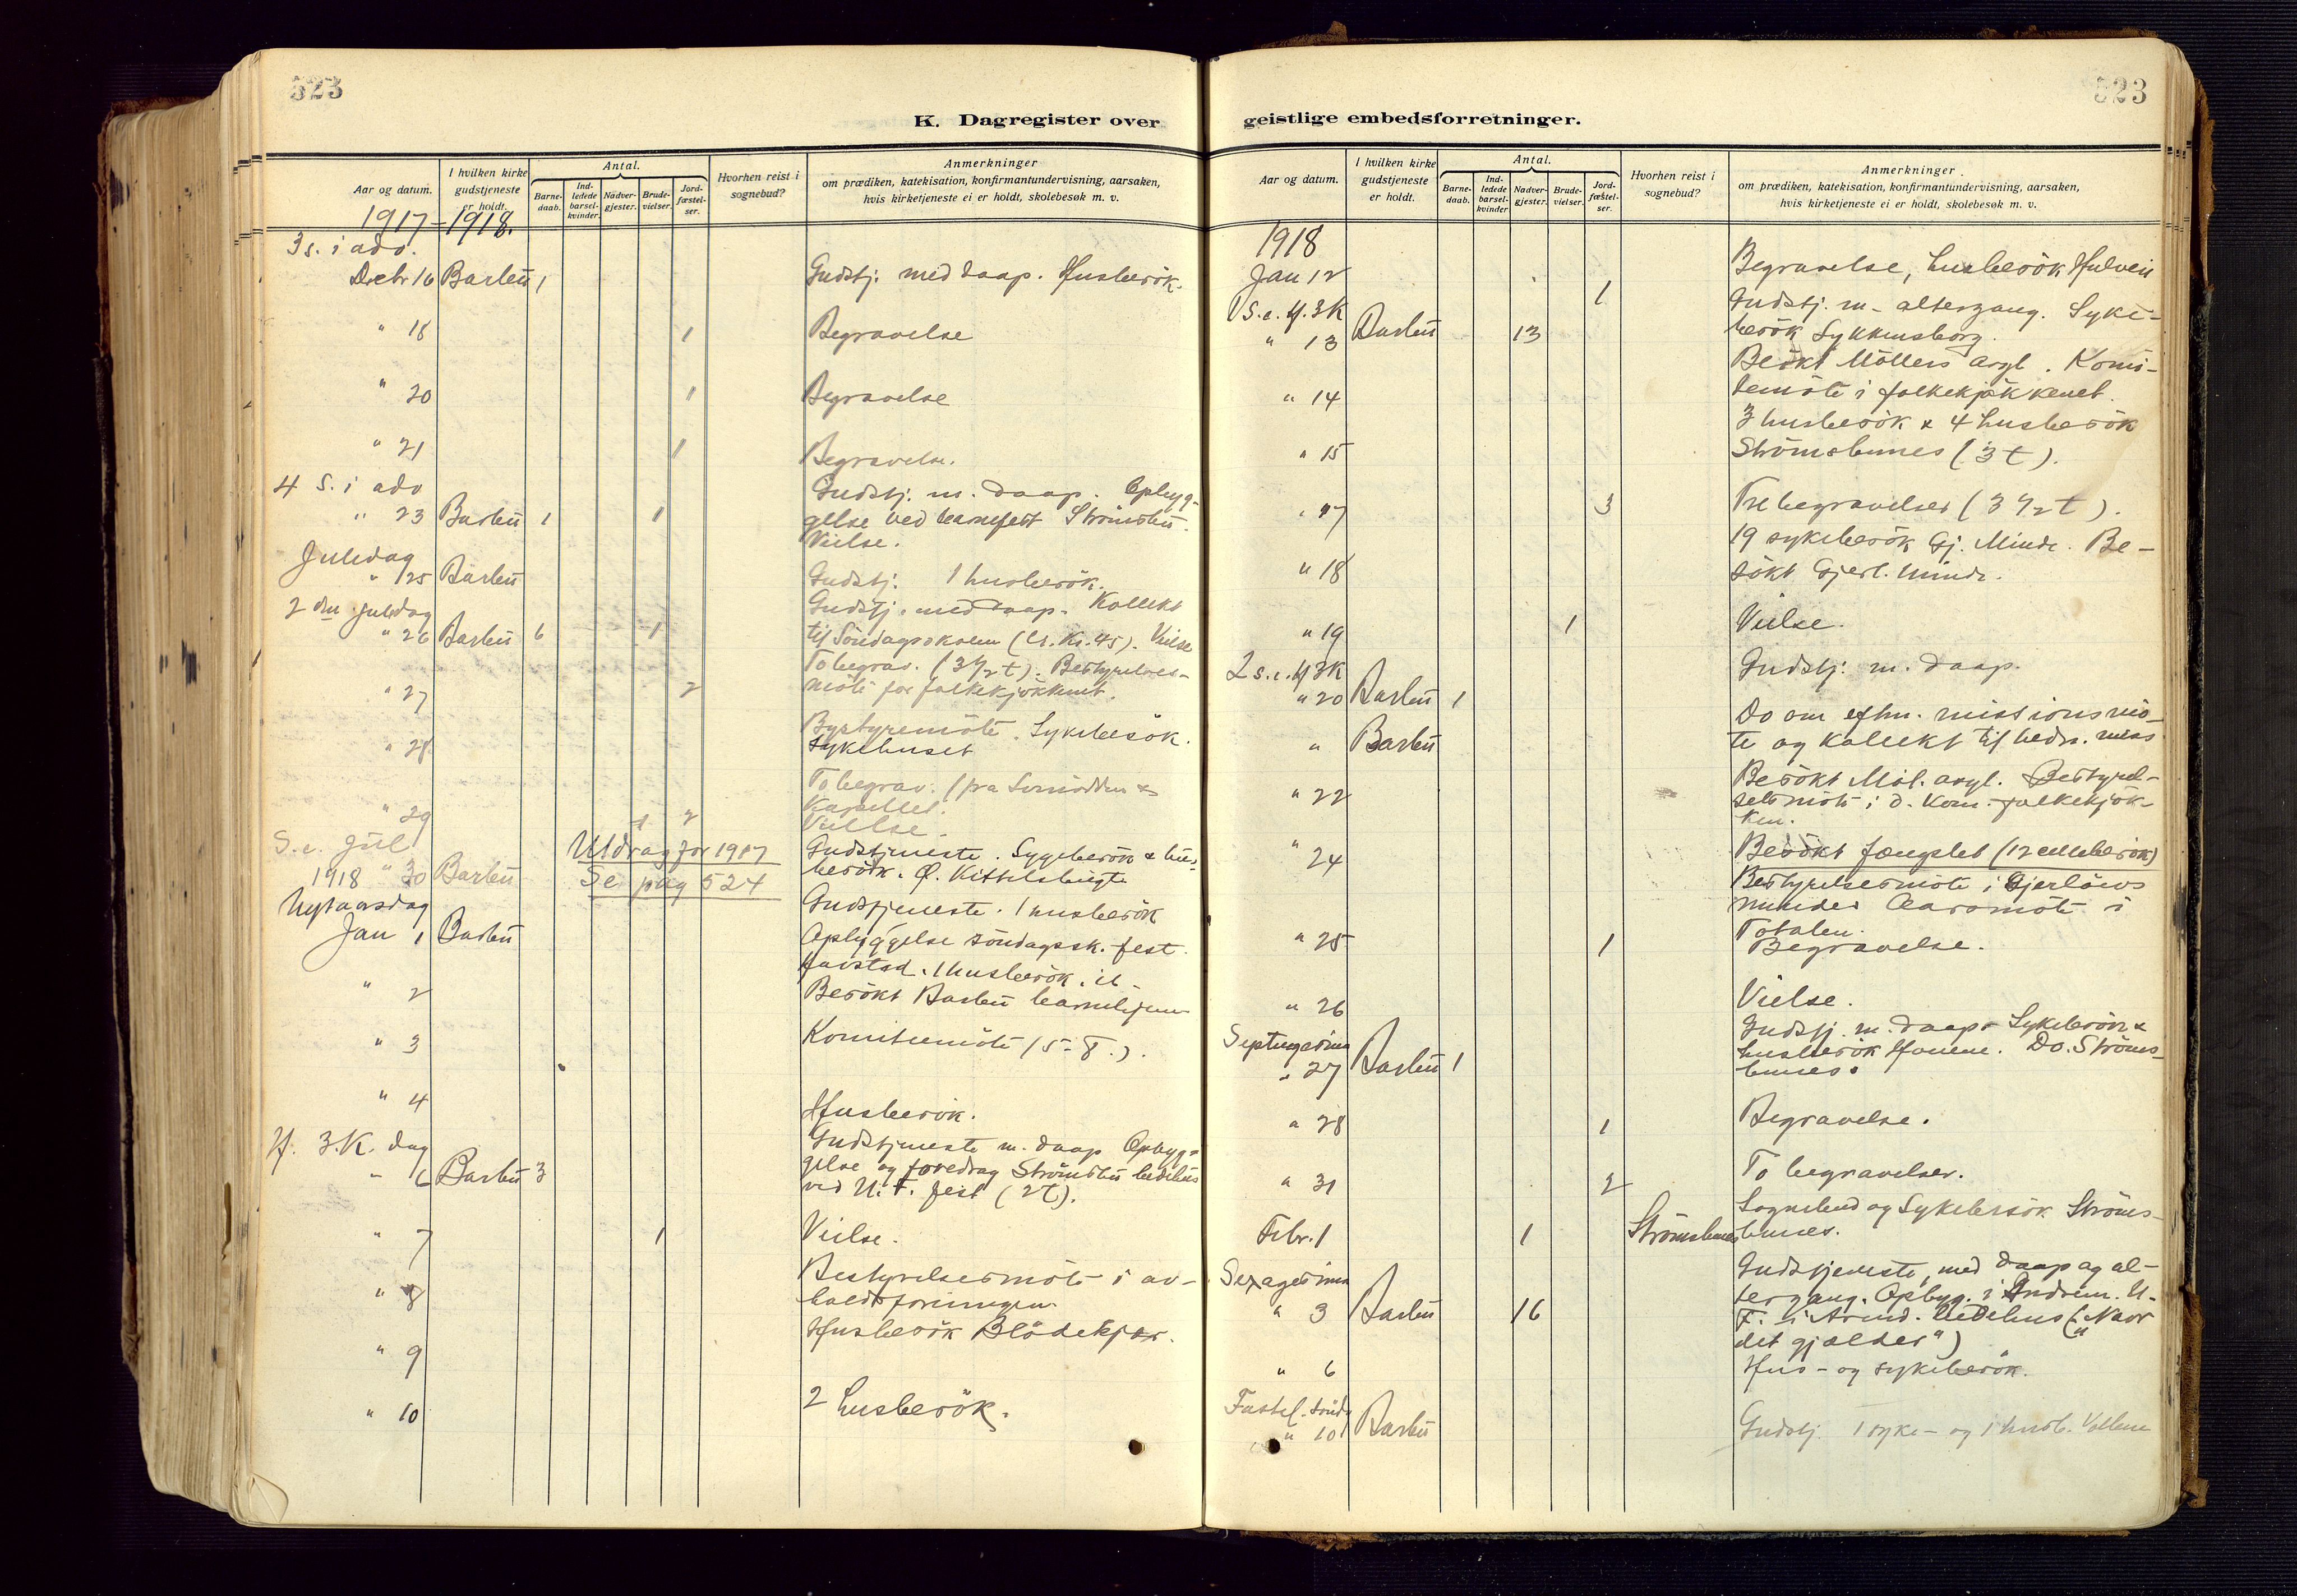 523
K. Dagregister over
Aar og datum.
I hvilken kirke gudstjeneste er holdt.
Antal.
Barnedaab.
Indledede barselkvinder.
Nadvergjester.
Brudevielser.
Jordfæstelser.
Hvorhen reist i sognebud?
Anmerkninger
om prædiken, katekisation, konfirmantundervisning, aarsaken,
hvis kirketjeneste ei er holdt, skolebesøk m. v.
1917-1918.
3 s. i adv.
Decbr 16 Barbu 1 Gudstj. med daap. Husbesök.
" 18 1 Begravelse
" 20 1 Begravelse
" 21 1 Begravelse.
4 S. i adv Gudstj. m. daap. Opbyg-
" 23 Barbu 1 1 gelse ved barnefest Strömsbu.
Vielse.
Juledag
" 25 Barbu Gudstj. 1 husbesök.
2 den juledag Gudstj. med daap. Kollekt
" 26 Barbu 6 1 til Söndagsskolen (Kr. 45). Vielse
To begrav. (3 1/2 t). Bestyrelses-
" 27 2 möte for folkekjökkenet.
Bystyremöte. Sykebesök.
" 28 Sykehuset
To begrav. (fra &
" 29 1 2 Kapellet.
Vielse.
S. e. Jul Utdrag for 1917 Gudstjeneste. Sygebesök & hus-
1918 " 30 Barbu Se pag 524 besök. Ø. Kittelsbugt
Nytaarsdag Gudstjeneste. 1 husbesök
Jan 1 Barbu Opbyggelse söndagssk. fest.
1 husbesök.
" 2 Besökt Barbu barnehjem
" 3 Komiteemöte (5-8.).
" 4 Husbesök.
H. 3. K. dag Gudstjeneste m. daap Opbyg-
" 6 Barbu 3 gelse og foredrag Strömsbu bedehus
ved U. F. fest (2t).
" 7 1 Vielse.
" 8 Bestyrelsesmöte i av-
holdsforeningen
" 9 Husbesök Blödekjær.
" 10 2 husbesök.
523
geistlige embedsforretninger.
Aar og datum.
I hvilken kirke gudstjeneste er holdt.
Antal.
Barnedaab.
Indledede barselkvinder
Nadvergjester.
Brudevielser.
Jordfæstelser.
Hvorhen reist i sognebud?
Anmerkninger.
om prædiken, katekisation, konfirmantundervisning, aarsaken,
hvis kirketjeneste ei er holdt, skolebesøk m. v.
1918
Jan 12 1 Begravelse, husbesök
1 S. e. H. 3 K Gudstj. m. altergang. Syke-
" 13 Barbu 13 besök
Besökt Möllers asyl. Komi-
" 14 temöte i folkekjökkenet.
3 husbesök & 4 husbesök
" 15 Strömsbunes (3 t).
" 17 3 Tre begravelser (3 1/2 t).
19 sykebesök Gj. Minde. Be-
" 18 sökt Gjerl. minde.
" 19 1 Vielse.
2 s. e. H 3 K Gudstj. m. daap.
" 20 Barbu 1
" Barbu Do om eftm. missionsmö-
te og kollekt til hedn. miss
" 22 Besökt Möl. asyl. Bestyrel-
selsmöte i d. kom. folkekjök-
ken.
" 24 Besökt fængslet (12 cellebesök)
Bestyrelsesmöte i Gjerlöws
mindes Aarsmöte i
Totalen.
" 25 1 Begravelse.
" 26 Vielse.
Septuagesima Gudstj. m. daap. Sykebesök &
" 27 Barbu 1 husbesök Do. Ströms-
bunes.
" 28 1 Begravelse.
" 31 2 To begravelser.
Sognebud og Sykebesök Ströms-
Febr. 1 1 Strömsbunes bunes.
Sexagesima Gudstjeneste, med daap og al-
" 3 Barbu 16 tergang. Opbyg. i Indrem. U-
F. i Arend. bedehus ("Naar
det gjælder")
" 6 Hus- og sykebesök.
Fastel. Sönd
" 10 Barbu Gudstj. 1 syke- og 1 husb.